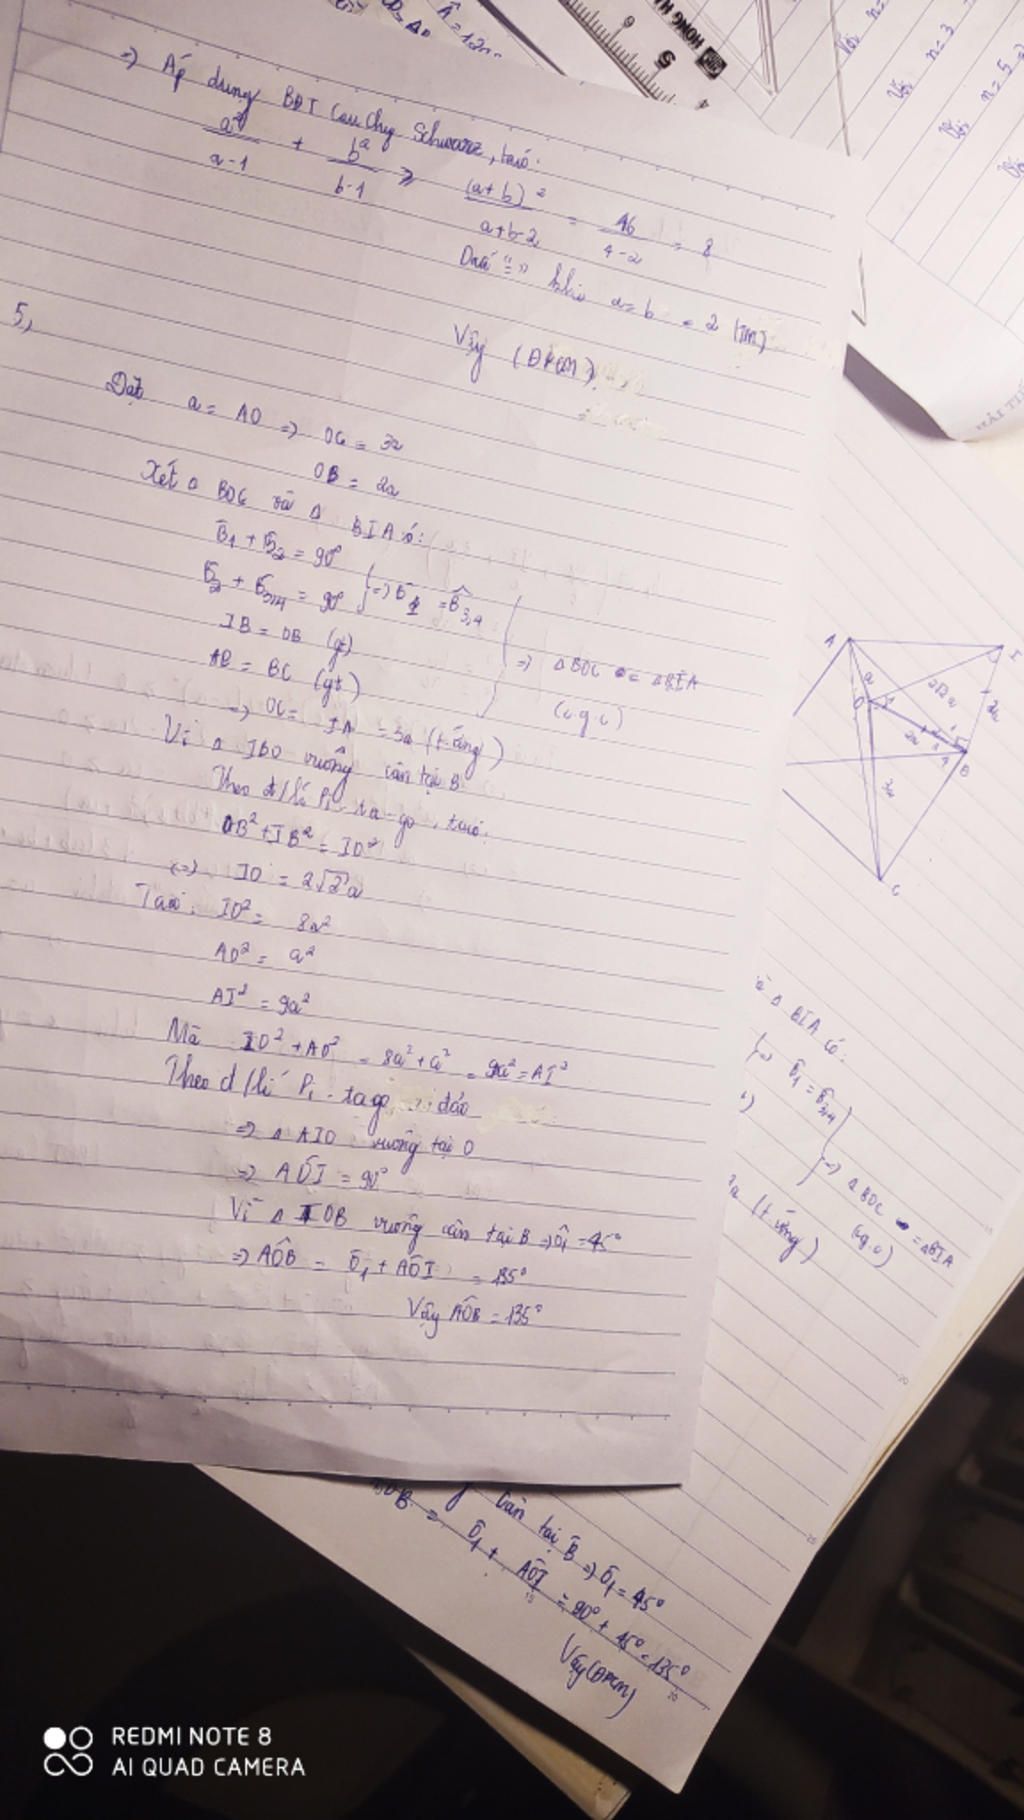 ⇒ Áp dụng BĐT Cauchy Schwarz, ta có:
a²/(a-1) + b²/(b-1) ≥ (a+b)²/(a+b-2) = 16/(4-2) = 8
Dấu "=" khi a = b = 2 (TM)
Vậy (ĐPCM).
5,
Đặt a = AO ⇒ OC = 3a
OB = 2a
Xét Δ BOC và Δ BIA có:
B̂1 + B̂2 = 90°
B̂2 + B̂3,4 = 90° } ⇒ B̂1 = B̂3,4
IB = OB (gt)
AB = BC (gt)
⇒ Δ BOC = Δ BIA
(c.g.c)
⇒ OC = IA = 3a (t.ứng)
Vì Δ IBO vuông cân tại B
Theo đ/lí Pi-ta-go, ta có:
OB² + IB² = IO²
⇔ IO = 2√2 a
Ta có: IO² = 8a²
AO² = a²
AI² = 9a²
Mà IO² + AO² = 8a² + a² = 9a² = AI²
Theo đ/lí Pi-tago đảo
⇒ Δ AIO vuông tại O
⇒ AÔI = 90°
Vì Δ IOB vuông cân tại B ⇒ Ô1 = 45°
⇒ AÔB = Ô1 + AÔI = 135°
Vậy AÔB = 135°
A
I
a
O
2√2 a
2a
2a
B
3a
C
Δ BIA có:
⇒ B̂1 = B̂3,4
⇒ Δ BOC = Δ BIA
(c.g.c)
(t.ứng)
cân tại B ⇒ Ô1 = 45°
= Ô1 + AÔI = 90° + 45° = 135°
Vậy (ĐPCM)
HONG HA
5
6
n = 3
n = 5
REDMI NOTE 8
AI QUAD CAMERA